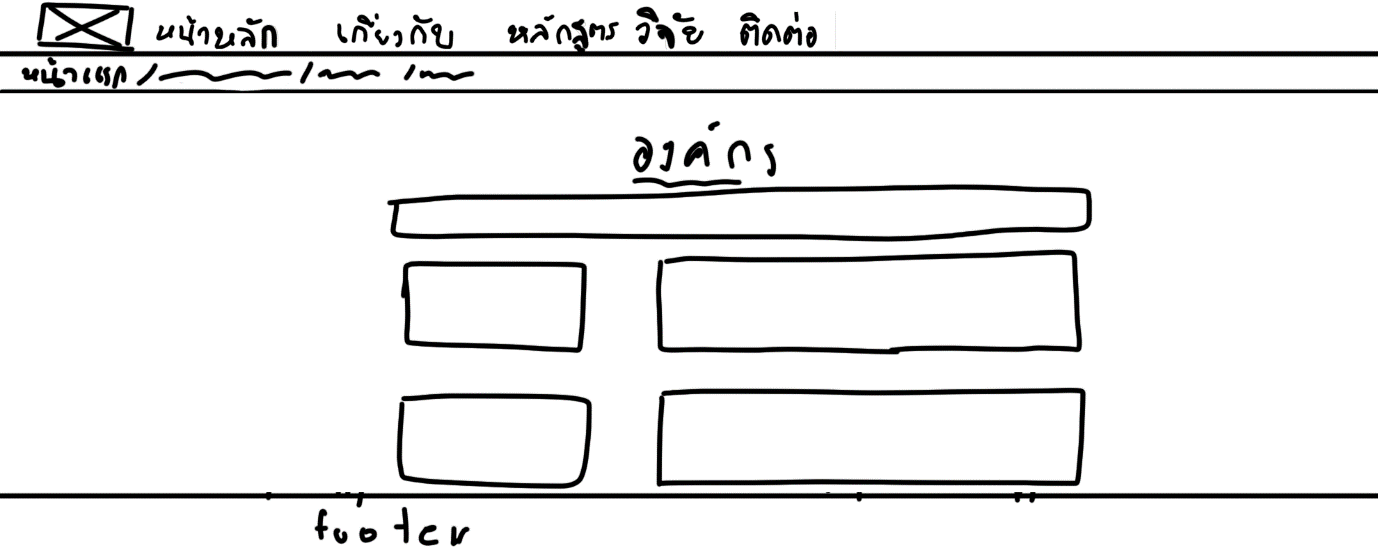 หน้าหลัก เกี่ยวกับ หลักสูตร วิจัย ติดต่อ
หน้าแรก / / /
องค์กร
footer